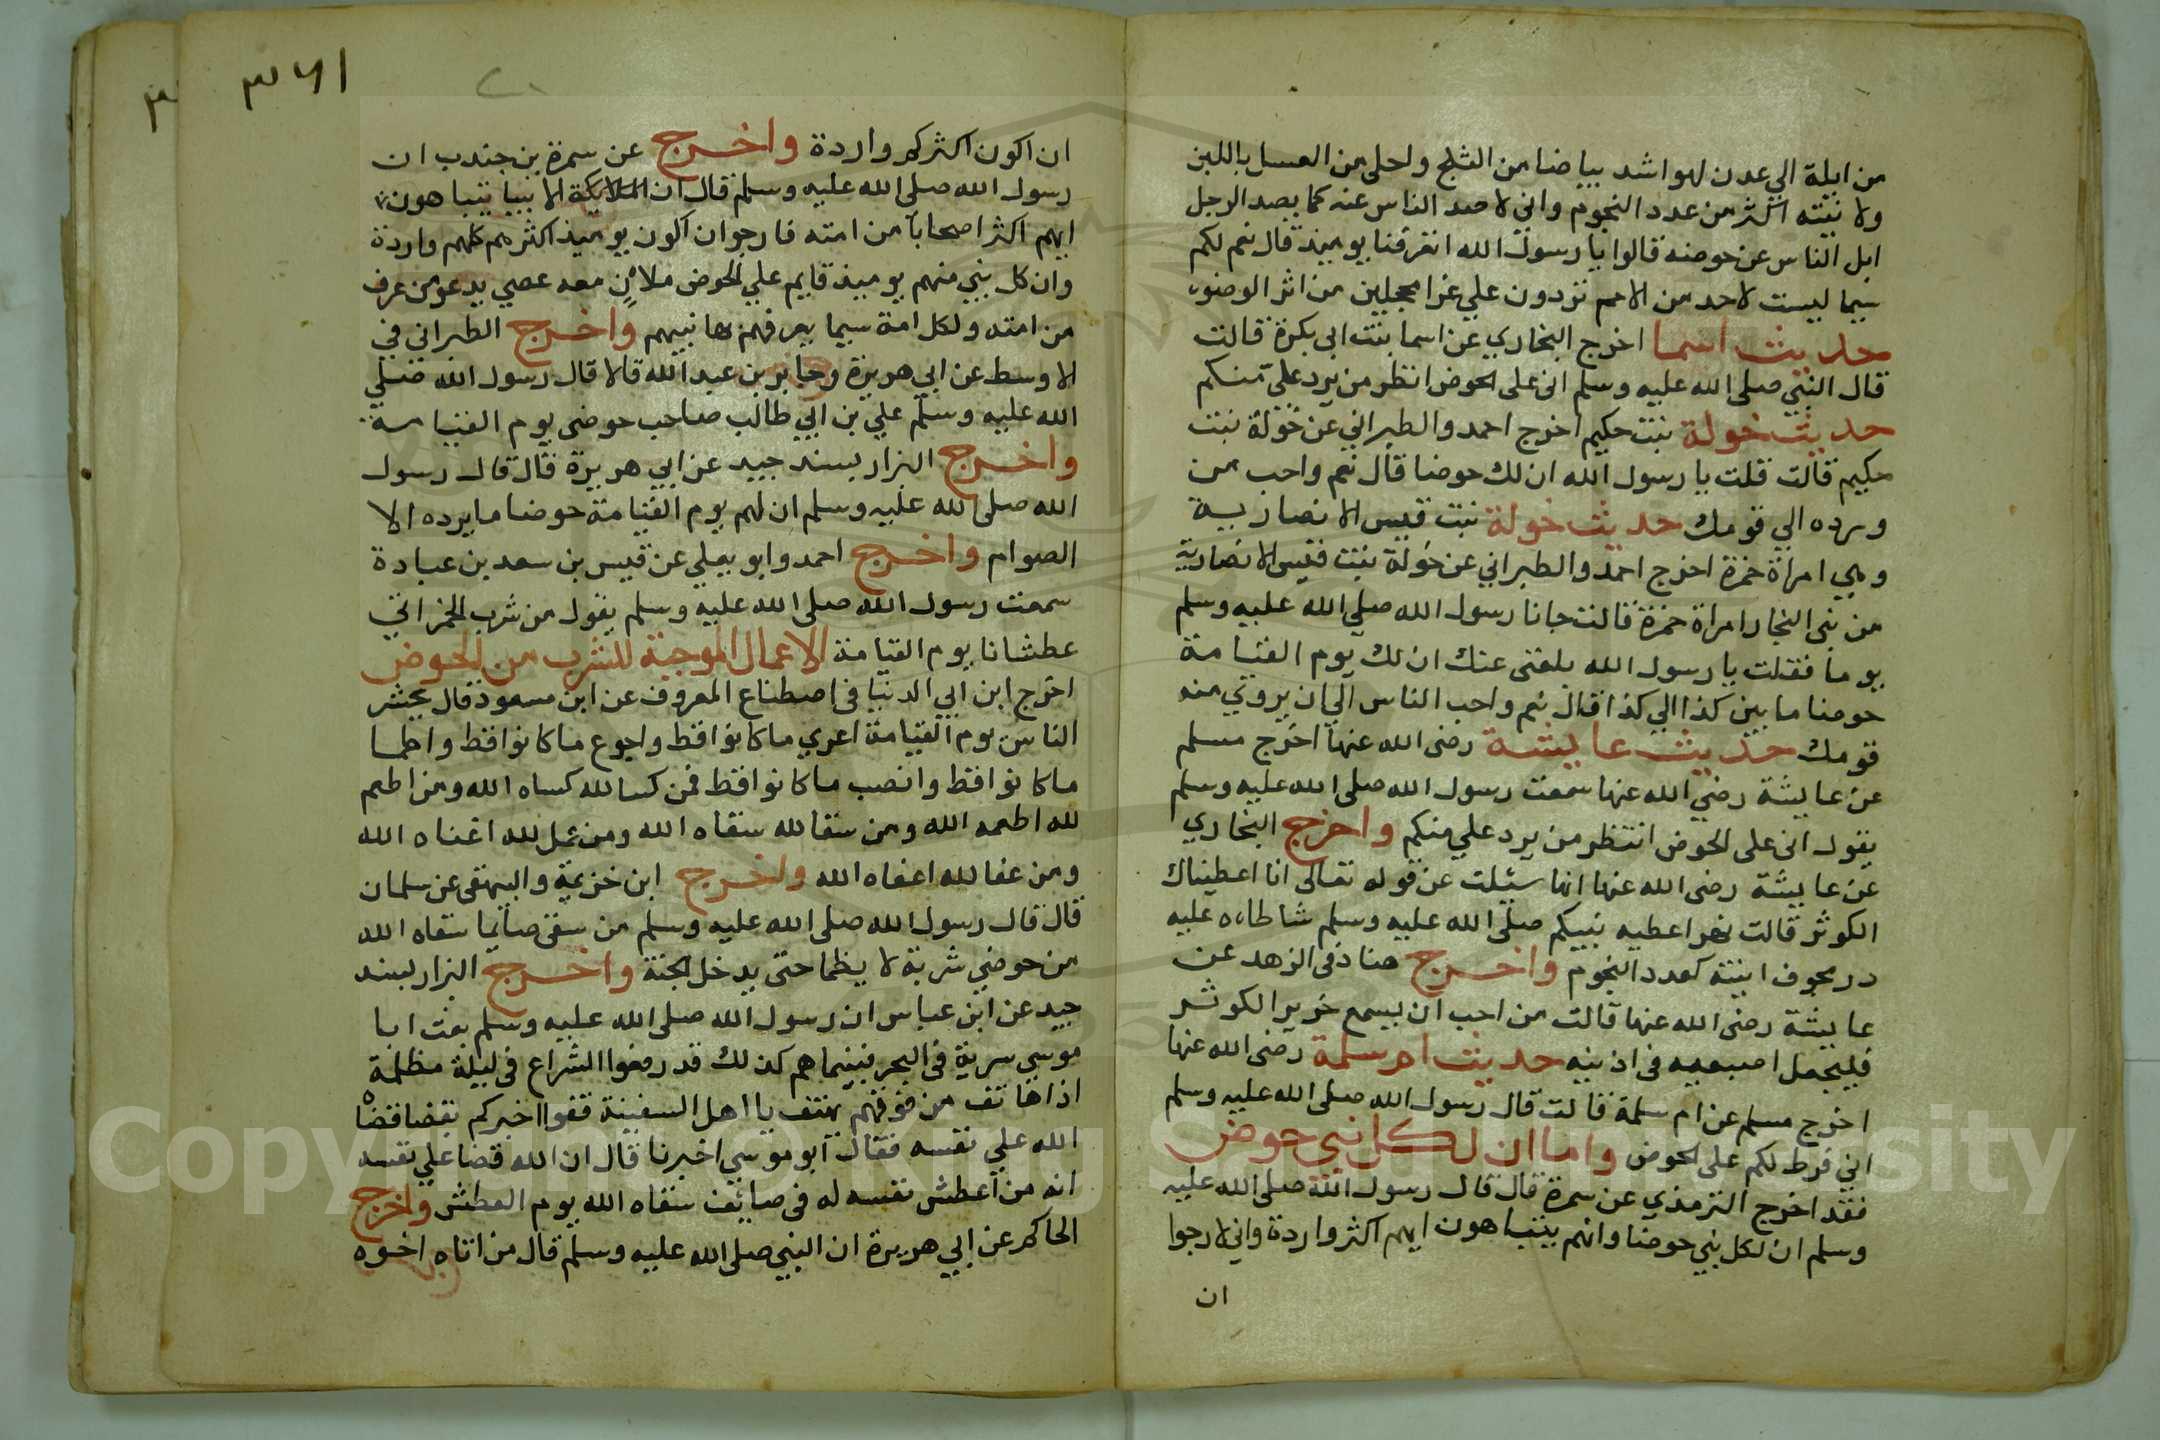 من ايلة الي عدن لهو اشد بياضا من الثلج واحلى من العسل باللبن
ولا نيته اكثر من عدد النجوم واني لاصد الناس عنه كما يصد الرجل
ابل الناس عن حوضه قالوا يا رسول الله اتعرفنا يوميذ قال نعم لكم
سيما ليست لاحد من الامم تردون علي غرا محجلين من اثر الوضوء
حديث اسما اخرج البخاري عن اسما بنت ابي بكرة قالت
قال النبي صلى الله عليه وسلم اني على الحوض انظر من يرد علي منكم
حديث خولة بنت حكيم اخرج احمد والطبراني عن خولة بنت
حكيم قالت قلت يا رسول الله ان لك حوضا قال نعم واحب من
ورده الي قومك حديث خولة بنت قيس الانصارية
وهي امراة حمزة اخرج احمد والطبراني عن خولة بنت قيس الانصارية
من بني النجار امراة حمزة قالت جانا رسول الله صلى الله عليه وسلم
يوما فقلت يا رسول الله بلغني عنك ان لك يوم القيامة
حوضا ما بين كذا الي كذا قال نعم واحب الناس الي ان يروي منه
قومك حديث عايشة رضى الله عنها اخرج مسلم
عن عايشة رضي الله عنها سمعت رسول الله صلى الله عليه وسلم
يقول اني على الحوض انتظر من يرد علي منكم واخرج البخاري
عن عايشة رضى الله عنها انها سئلت عن قوله تعالى انا اعطيناك
الكوثر قالت نهر اعطيه نبيكم صلى الله عليه وسلم شاطاه عليه
در مجوف انيته كعدد النجوم واخرج هناد في الزهد عن
عايشة رضى الله عنها قالت من احب ان يسمع خرير الكوثر
فليجعل اصبعيه في اذنيه حديث ام سلمة رضى الله عنها
اخرج مسلم عن ام سلمة قالت قال رسول الله صلى الله عليه وسلم
اني فرط لكم على الحوض واما ان لكل نبي حوض
فقد اخرج الترمذي عن سمرة قال قال رسول الله صلى الله عليه
وسلم ان لكل نبي حوضا وانهم يتباهون ايهم اكثر واردة واني لارجوا
ان
٣٦١
ان اكون اكثركم واردة واخرج عن سمرة بن جندب ان
رسول الله صلى الله عليه وسلم قال ان الانبيا يتباهون
ايهم اكثر اصحابا من امته فارجوا ان اكون يوميذ اكثرهم كلهم واردة
وان كل نبي منهم يوميذ قايم علي الحوض ملان معه عصي يدعو من عرف
من امته ولكل امة سيما يعرفهم بها نبيهم واخرج الطبراني في
الاوسط عن ابي هريرة وجابر بن عبد الله قالا قال رسول الله صلى
الله عليه وسلم علي بن ابي طالب صاحب حوضى يوم القيامة
واخرج البزار بسند جيد عن ابي هريرة قال قال رسول
الله صلى الله عليه وسلم ان لهم يوم القيامة حوضا ما يرده الا
الصوام واخرج احمد وابو يعلي عن قيس بن سعد بن عبادة
سمعت رسول الله صلى الله عليه وسلم يقول من شرب الخمر اتي
عطشانا يوم القيامة الاعمال الموجبة للشرب من الحوض
اخرج ابن ابي الدنيا في اصطناع المعروف عن ابن مسعود قال يحشر
الناس يوم القيامة اعري ما كانوا قط واجوع ما كانوا قط واظما
ما كانوا قط وانصب ما كانوا قط فمن كسا لله كساه الله ومن اطعم
لله اطعمه الله ومن سقا لله سقاه الله ومن عمل لله اغناه الله
ومن عفا لله اعفاه الله واخرج ابن خزيمة والبيهقى عن سلمان
قال قال رسول الله صلى الله عليه وسلم من سقى صايما سقاه الله
من حوضي شربة لا يظما حتى يدخل الجنة واخرج البزار بسند
جيد عن ابن عباس ان رسول الله صلى الله عليه وسلم بعث ابا
موسي سرية في البحر فبينما هم كذلك قد رفعوا الشراع في ليلة مظلمة
اذا هاتف من فوقهم يهتف يا اهل السفينة قفوا اخبركم بقضا قضاه
الله علي نفسه فقال ابو موسي اخبرنا قال ان الله قضا علي نفسه
انه من اعطش نفسه له في صائف سقاه الله يوم العطش واخرج
الحاكم عن ابي هريرة ان النبي صلى الله عليه وسلم قال من اتاه اخوه
Copyright © King Saud University